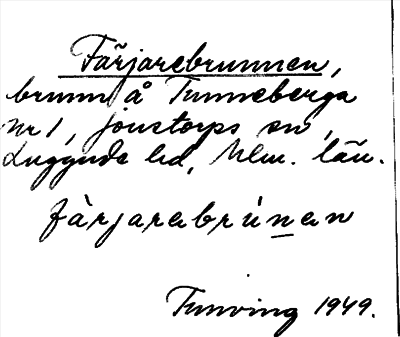 Färjarebrunnen,
brunn å Tunneberga
nr 1, Jonstorps sn,
Luggude hd, Mlm. län.
färjarabrúnan
Tunving 1949.